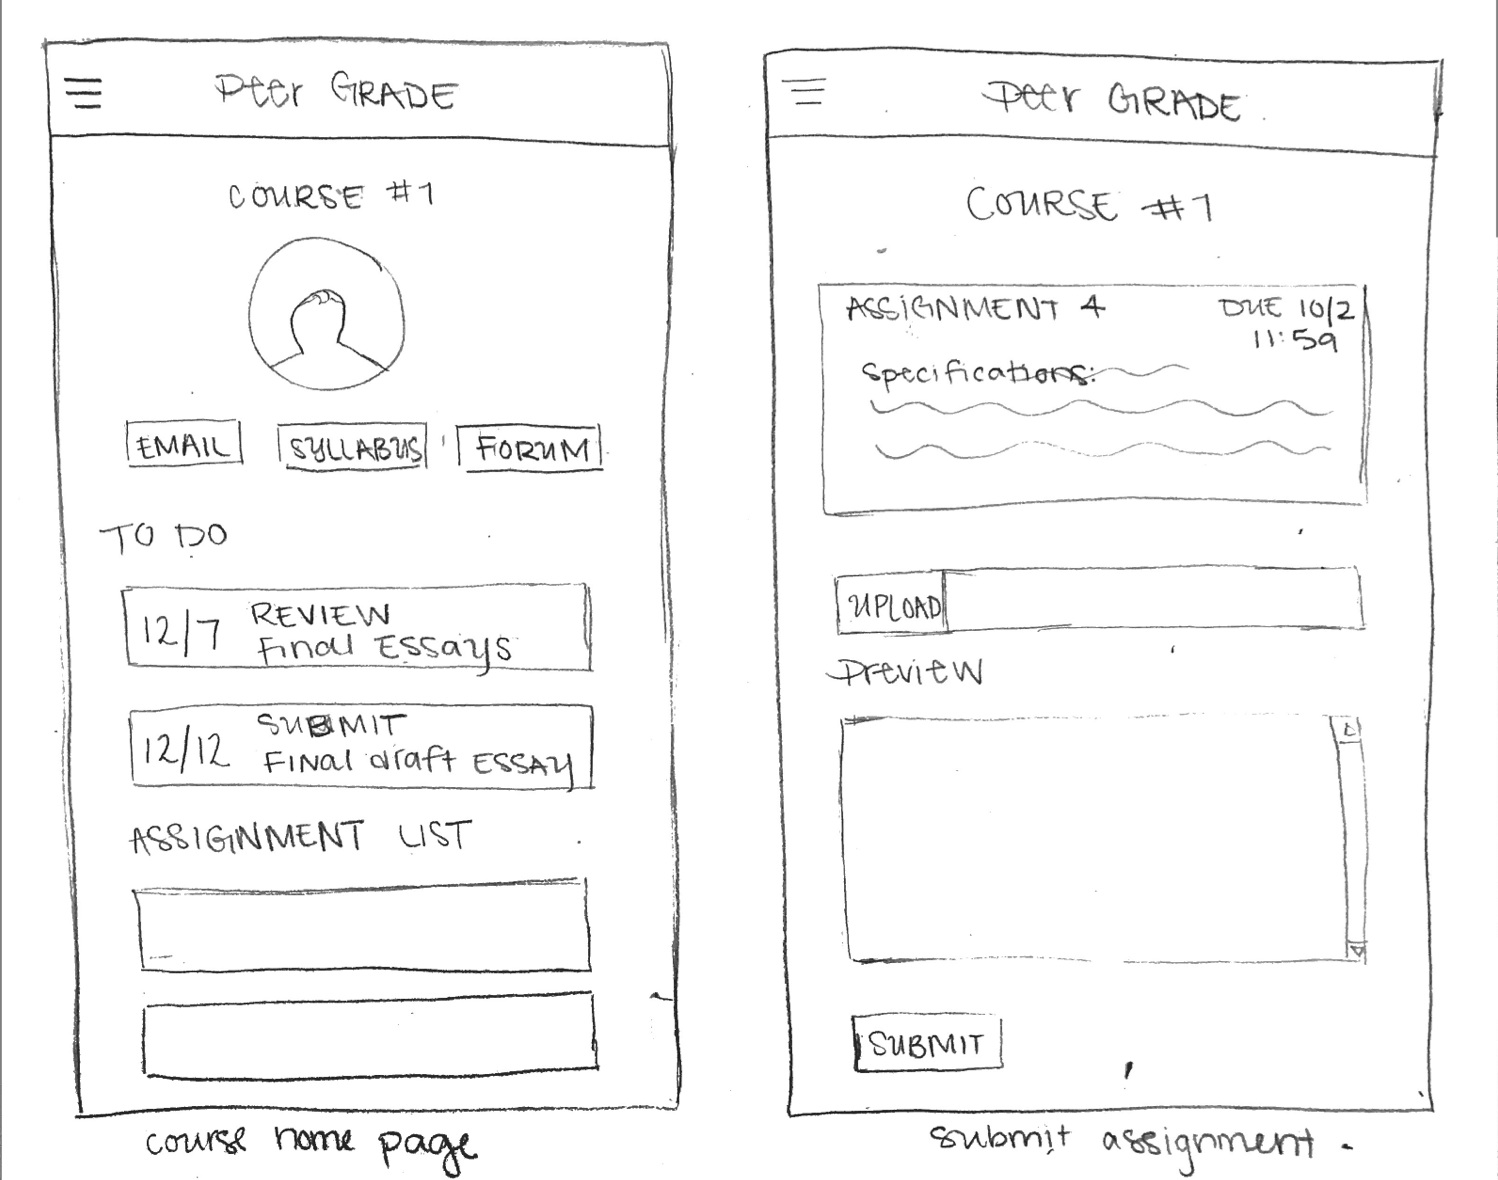 Peer GRADE
COURSE #1
EMAIL
SYLLABUS
FORUM
TO DO
12/7 REVIEW
Final Essays
12/12 SUBMIT
FINAl draft ESSAY
ASSIGNMENT LIST
course home page
Peer GRADE
COURSE #1
ASSIGNMENT 4 DUE 10/2
11:59
Specifications:
UPLOAD
Preview
SUBMIT
submit assignment.